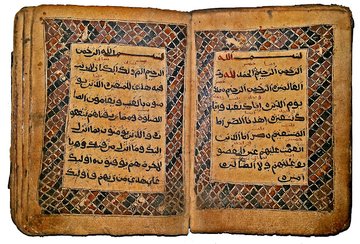 بسم الله
الرحمن الرحيم الحمد لله ر
ب العلمين الرحمن الرحيم ملك
يوم الدين اياك نعبد وايا
ك نستعين اهدنا الصراط ا
لمستقيم صراط الذين ا
نعمت عليهم غير المغضو
ب عليهم ولا الضالين
امين
بسم الله الرحمن
الرحيم الم ذلك الكتاب لا ريب
فيه هدى للمتقين الذين يو
منون بالغيب ويقيمون
الصلوة ومما رزقناهم ينفقو
ن والذين يومنون بما انزل
اليك وما انزل من قبلك وبا
لاخرة هم يوقنون اوليك
على هدى من ربهم واوليك